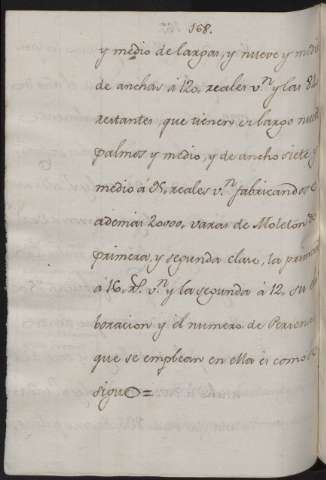 168.
y medio de largas, y nueve y medi
de anchas á 120. reales v.n y las
restantes, que tienen de largo nueve
palmos y medio, y de ancho siete y
medio á reales v.n fabricandose
ademas 20000. varas de Moleton de
primera, y segunda clase, la primera
á 16. r.s v.n y la segunda á 12. su
boracion y el numero de Personas
que se emplean en ella es como
sigue =